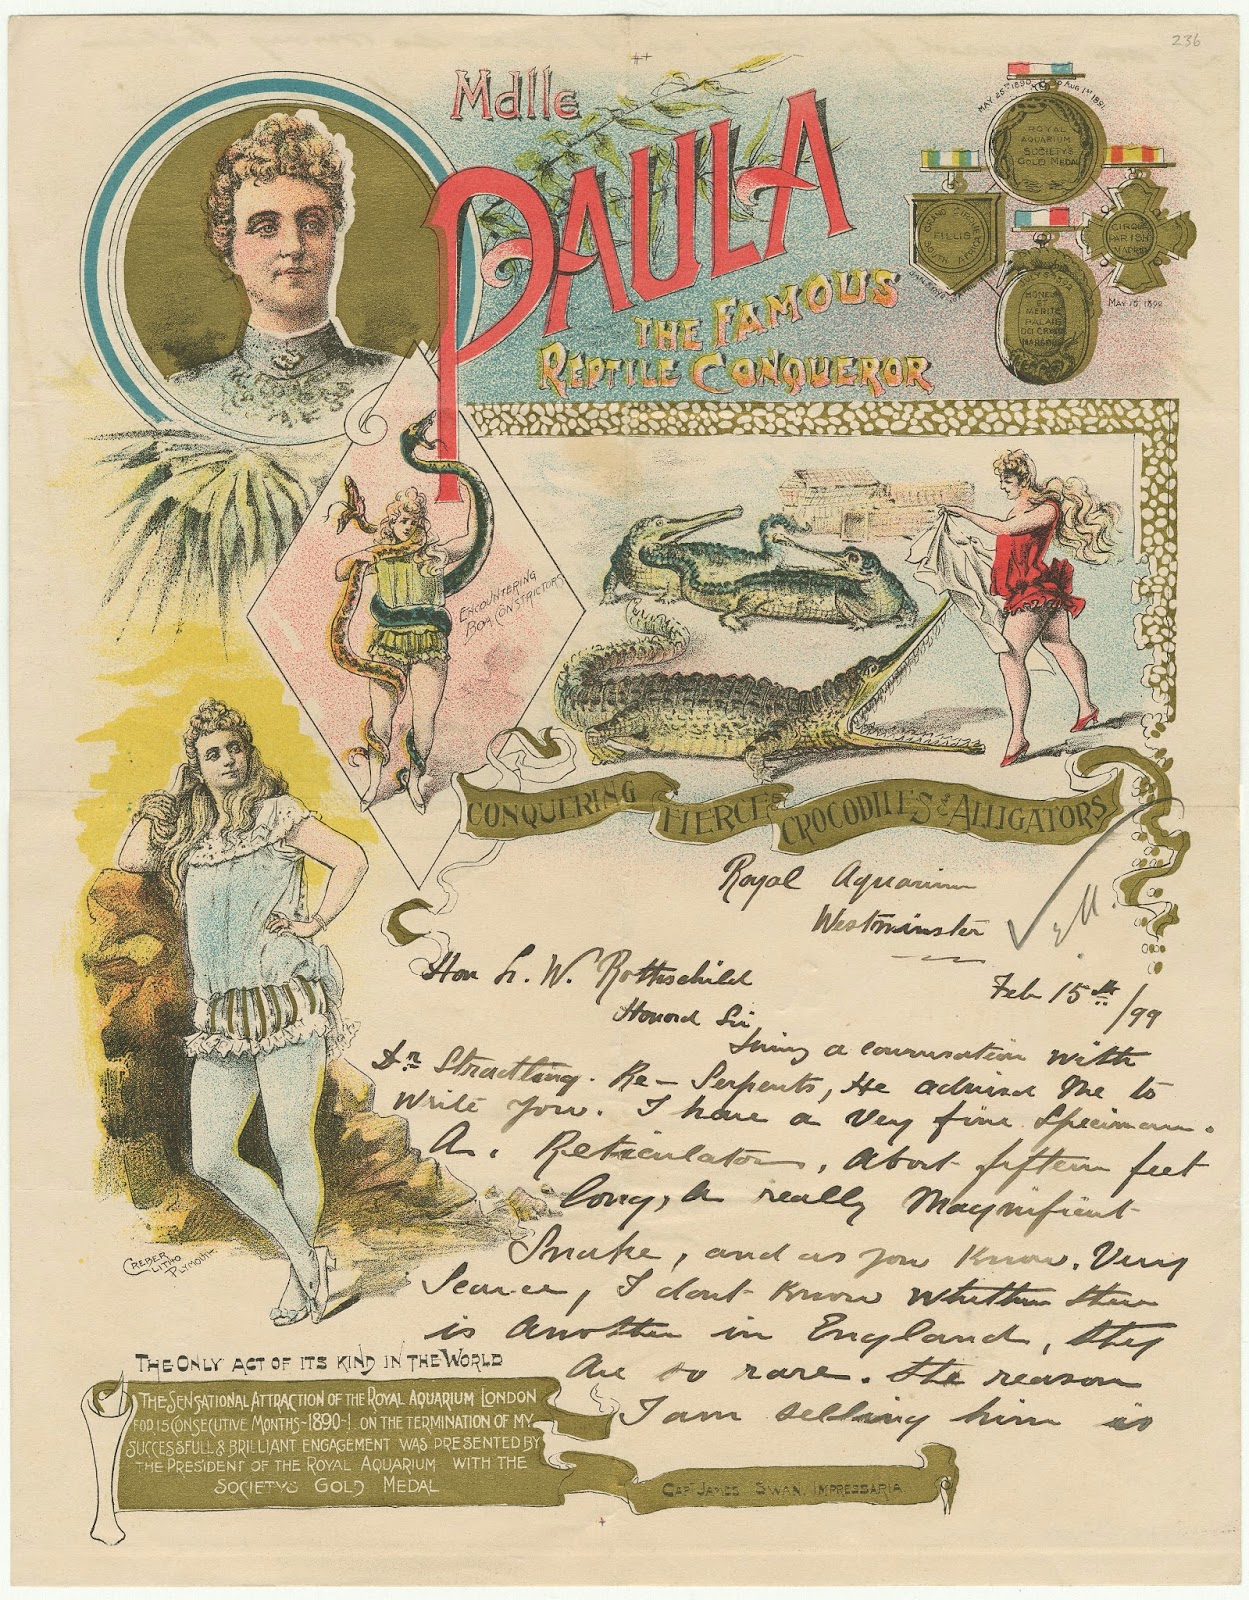 236
Mdlle
PAULA
THE FAMOUS
REPTILE CONQUEROR
MAY 25TH 1890 TO AUG 1ST 1891.
ROYAL
AQUARIUM
SOCIETY'S
GOLD MEDAL
FILLIS
SOUTH AFRICA
CIRQUE
PARISH
MADRID
MAY 15, 1892
HONEUR
ET
MERITE
PALAIS
DU CRYSTAL
ENCOUNTERING
BOA CONSTRICTORS
CONQUERING FIERCE CROCODILES & ALLIGATORS
Royal Aquarium
Westminster
Feb 15th /99
Hon L. W. Rothschild
Honord Sir
a conversation with
Dr Stradling. Re- Serpents, He advised Me to
Write you. I have a very fine Specimen.
A. Reticulatus, About fifteen feet
long, A really Magnificent
Snake, and as you Know. Very
Scarce, I dont Know whether there
is Another in England, they
Are so rare. The reason
I am selling him is
CREBER
LITHO
PLYMOUTH
THE ONLY ACT OF ITS KIND IN THE WORLD
THE SENSATIONAL ATTRACTION OF THE ROYAL AQUARIUM LONDON
FOD 15 CONSECUTIVE MONTHS-1890-1. ON THE TERMINATION OF MY
SUCCESSFULL & BRILLIANT ENGAGEMENT WAS PRESENTED BY
THE PRESIDENT OF THE ROYAL AQUARIUM WITH THE
SOCIETY'S GOLD MEDAL
CAPT JAMES SWAN, IMPRESSARIA